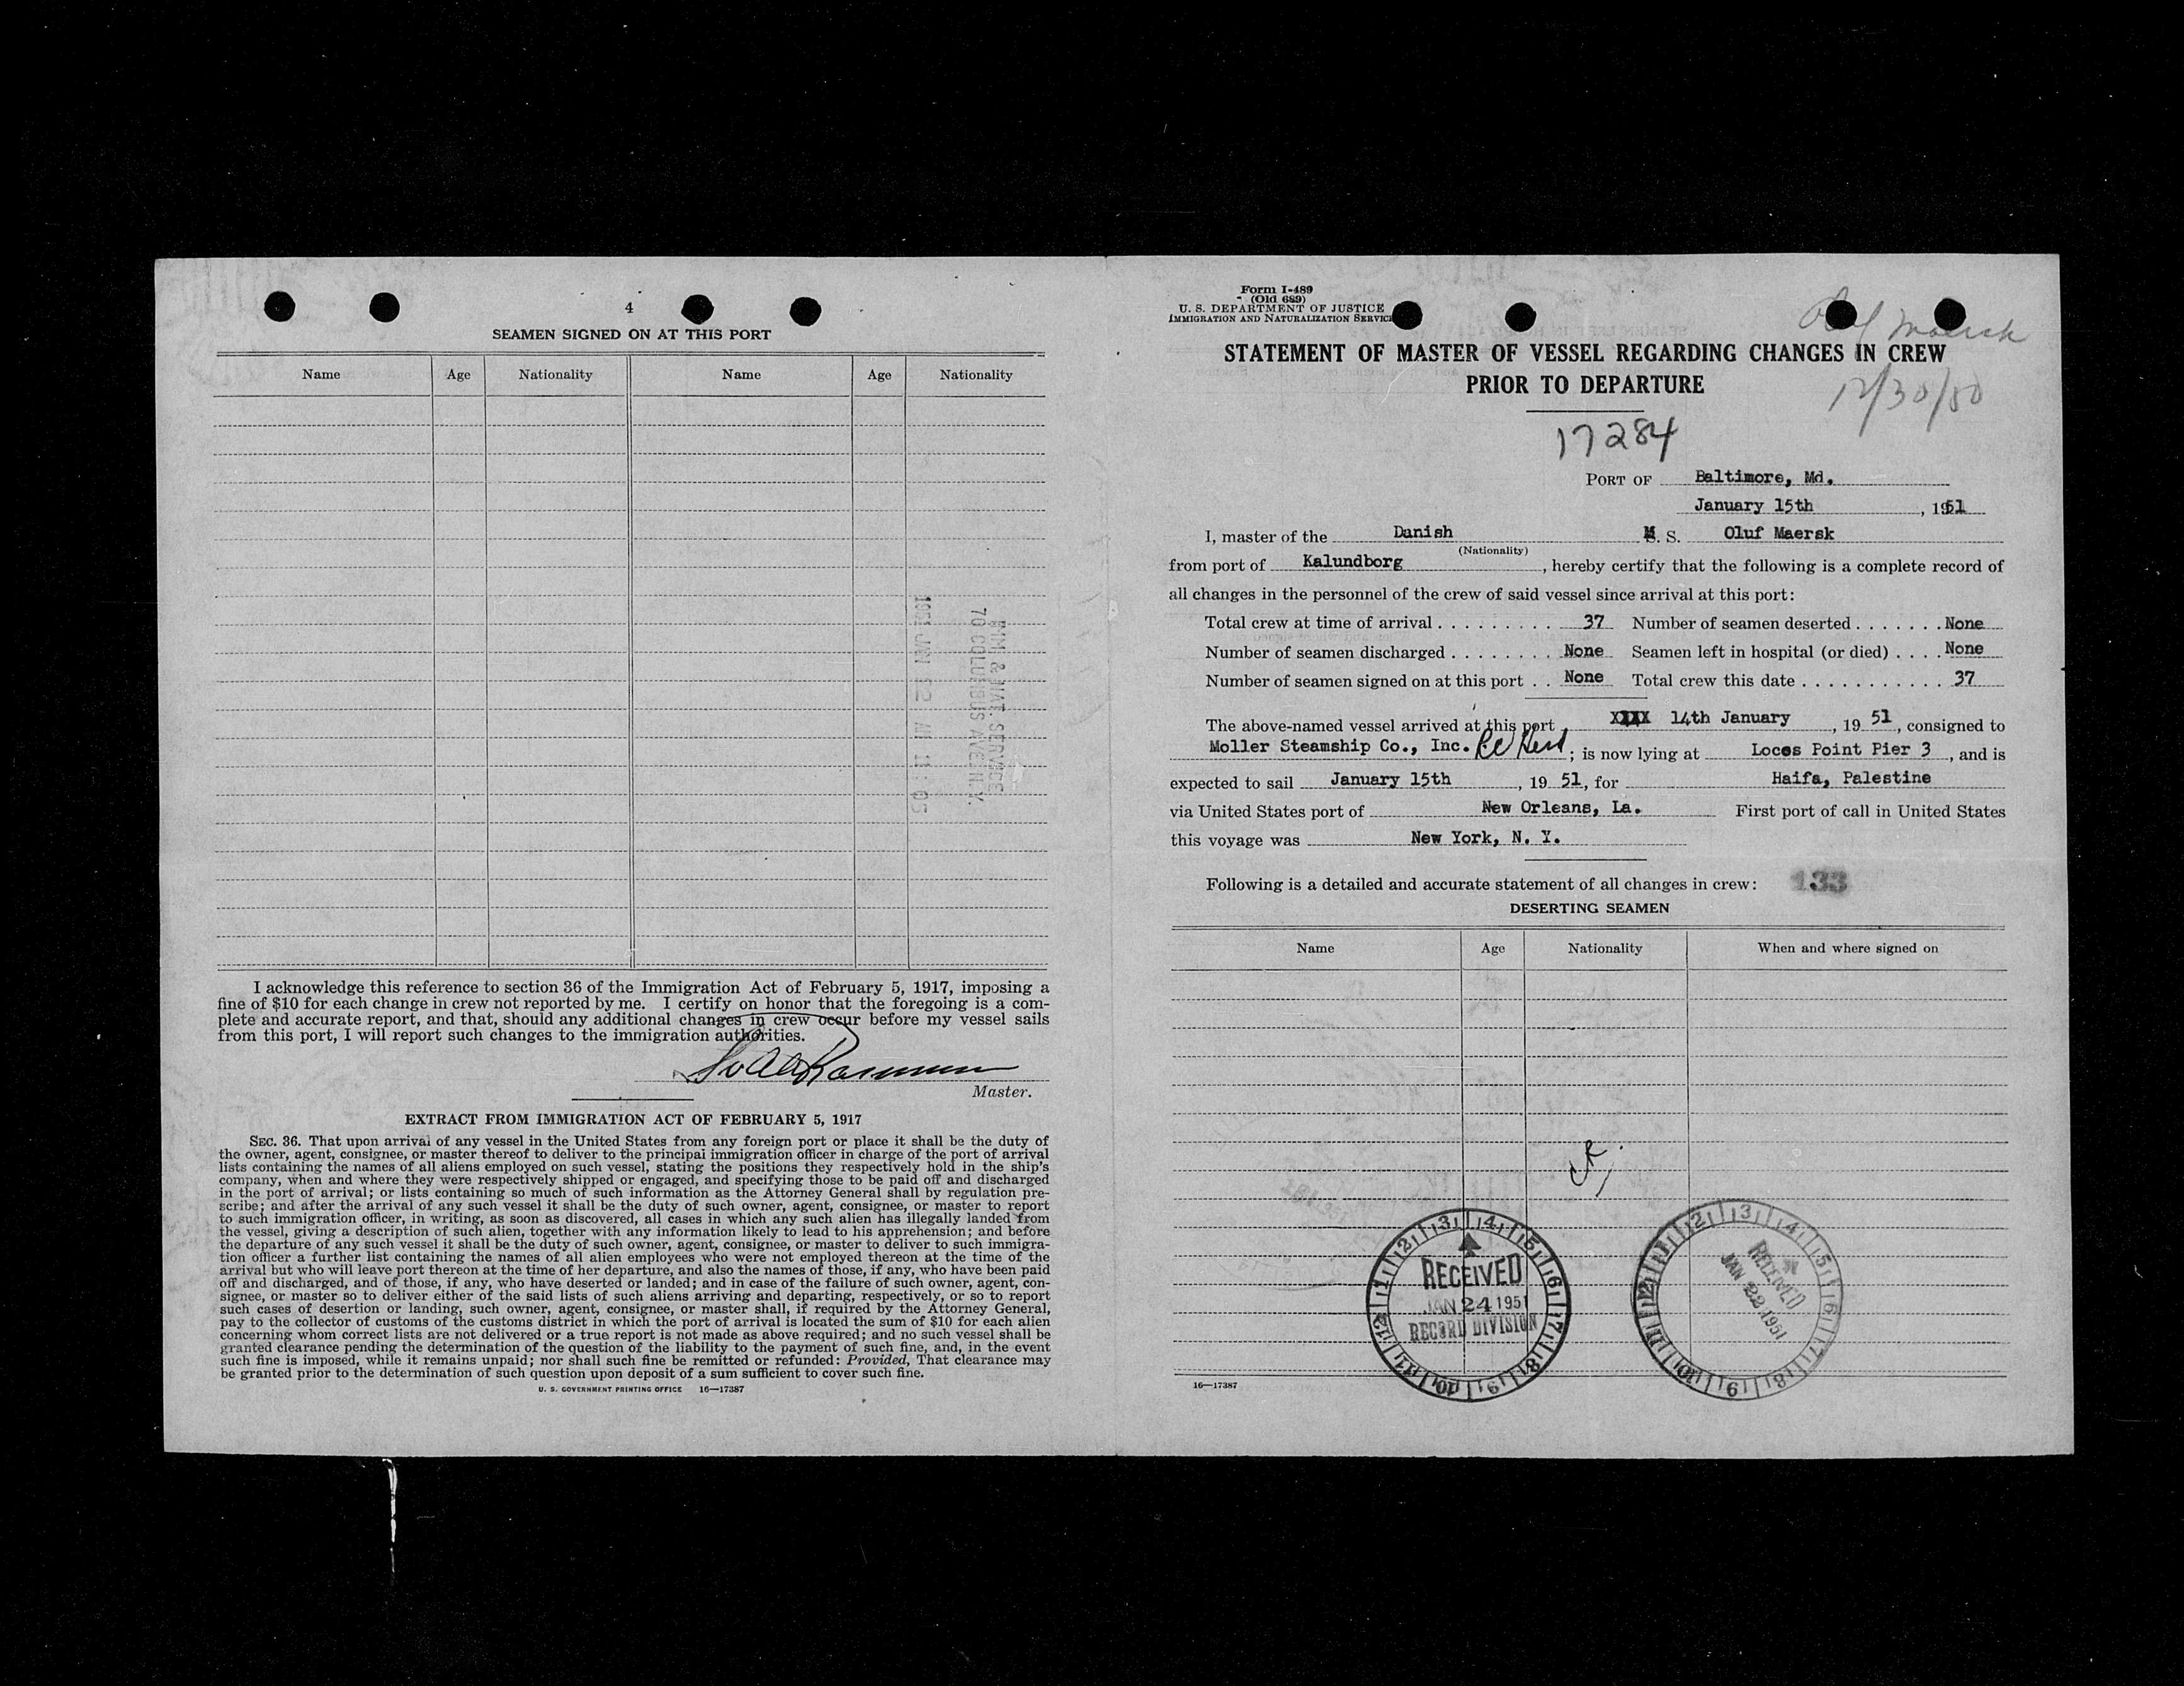 4
SEAMEN SIGNED ON AT THIS PORT
Name Age Nationality Name Age Nationality
IMM. & NAT. SERVICE
70 COLUMBUS AVE. N.Y.
1951 JAN 22 AM 11 05
I acknowledge this reference to section 36 of the Immigration Act of February 5, 1917, imposing a
fine of $10 for each change in crew not reported by me. I certify on honor that the foregoing is a com-
plete and accurate report, and that, should any additional changes in crew occur before my vessel sails
from this port, I will report such changes to the immigration authorities.
Master.
EXTRACT FROM IMMIGRATION ACT OF FEBRUARY 5, 1917
SEC. 36. That upon arrival of any vessel in the United States from any foreign port or place it shall be the duty of
the owner, agent, consignee, or master thereof to deliver to the principal immigration officer in charge of the port of arrival
lists containing the names of all aliens employed on such vessel, stating the positions they respectively hold in the ship's
company, when and where they were respectively shipped or engaged, and specifying those to be paid off and discharged
in the port of arrival; or lists containing so much of such information as the Attorney General shall by regulation pre-
scribe; and after the arrival of any such vessel it shall be the duty of such owner, agent, consignee, or master to report
to such immigration officer, in writing, as soon as discovered, all cases in which any such alien has illegally landed from
the vessel, giving a description of such alien, together with any information likely to lead to his apprehension; and before
the departure of any such vessel it shall be the duty of such owner, agent, consignee, or master to deliver to such immigra-
tion officer a further list containing the names of all alien employees who were not employed thereon at the time of the
arrival but who will leave port thereon at the time of her departure, and also the names of those, if any, who have been paid
off and discharged, and of those, if any, who have deserted or landed; and in case of the failure of such owner, agent, con-
signee, or master so to deliver either of the said lists of such aliens arriving and departing, respectively, or so to report
such cases of desertion or landing, such owner, agent, consignee, or master shall, if required by the Attorney General,
pay to the collector of customs of the customs district in which the port of arrival is located the sum of $10 for each alien
concerning whom correct lists are not delivered or a true report is not made as above required; and no such vessel shall be
granted clearance pending the determination of the question of the liability to the payment of such fine, and, in the event
such fine is imposed, while it remains unpaid; nor shall such fine be remitted or refunded: Provided, That clearance may
be granted prior to the determination of such question upon deposit of a sum sufficient to cover such fine.
U. S. GOVERNMENT PRINTING OFFICE 16—17387
Form I-489
(Old 689)
U. S. DEPARTMENT OF JUSTICE
IMMIGRATION AND NATURALIZATION SERVICE
Oluf Maersk
STATEMENT OF MASTER OF VESSEL REGARDING CHANGES IN CREW
PRIOR TO DEPARTURE
12/30/50
17284
PORT OF Baltimore, Md.
January 15th, 1951
I, master of the Danish M. S. Oluf Maersk
(Nationality)
from port of Kalundborg, hereby certify that the following is a complete record of
all changes in the personnel of the crew of said vessel since arrival at this port:
Total crew at time of arrival . . . . . . . . . 37 Number of seamen deserted . . . . . . . None
Number of seamen discharged . . . . . . . . None Seamen left in hospital (or died) . . . . None
Number of seamen signed on at this port . . None Total crew this date . . . . . . . . . . . 37
The above-named vessel arrived at this port XXXX 14th January, 19 51, consigned to
Moller Steamship Co., Inc. ; is now lying at Locos Point Pier 3, and is
expected to sail January 15th, 19 51, for Haifa, Palestine
via United States port of New Orleans, La. First port of call in United States
this voyage was New York, N. Y.
Following is a detailed and accurate statement of all changes in crew: 133
DESERTING SEAMEN
Name Age Nationality When and where signed on
RECEIVED
JAN 24 1951
RECORD DIVISION
1 2 3 4 5 6 7 8 9 10 11 12
RECEIVED
JAN 22 1951
1 2 3 4 5 6 7 8 9 10 11 12
16—17387